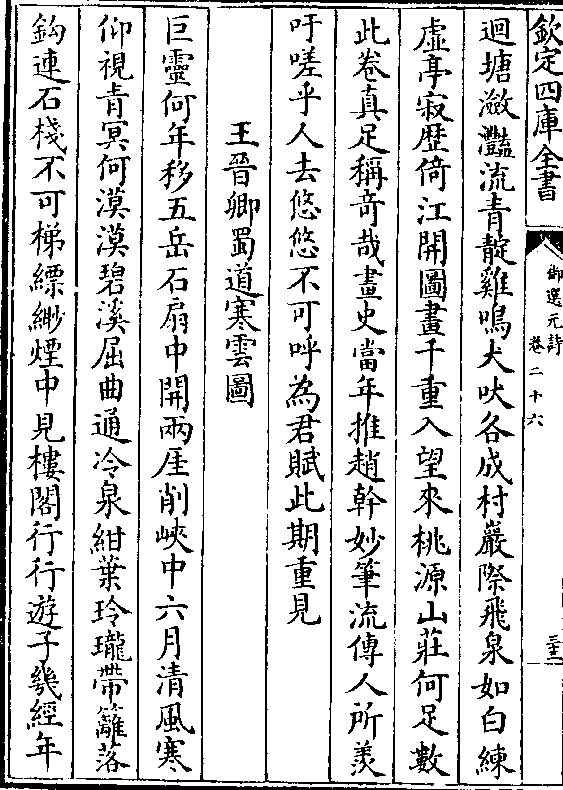 欽定四庫全書
御選元詩
卷二十六
三十二
迴塘瀲灩流青靛雞鳴犬吠各成村巖際飛泉如白練
虛亭寂歴倚江開圖畫千重入望來桃源山莊何足數
此卷真足稱奇哉畫史當年推趙幹妙筆流傳人所羨
吁嗟乎人去悠悠不可呼為君賦此期重見
王晉卿蜀道寒雲圖
巨靈何年移五岳石扇中開兩厓削峽中六月清風寒
仰視青冥何漠漠碧溪屈曲通冷泉紺葉玲瓏帶籬落
鈎連石棧不可梯縹緲煙中見樓閣行行遊子幾經年